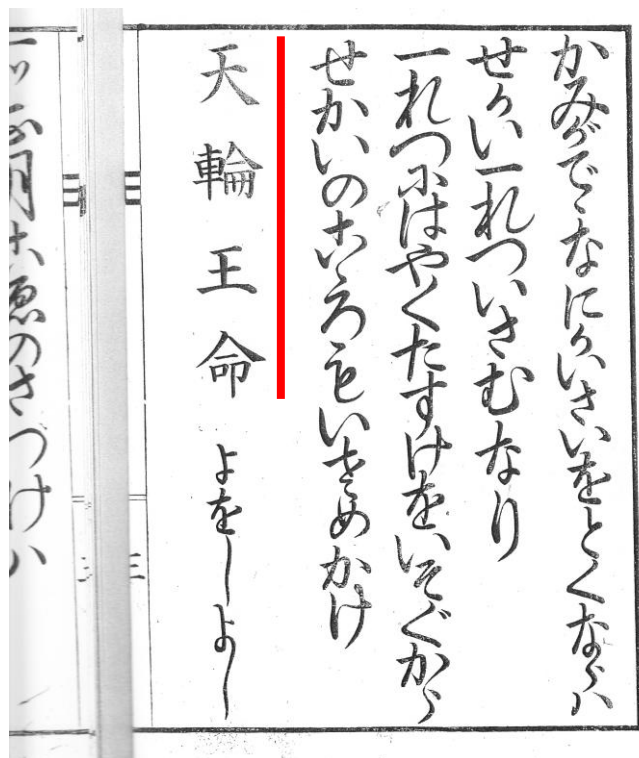 かみがでゝなにかいさいをとくならハ
せかい一れついさむなり
一れつにはやくたすけをいそぐから
せかいのこゝろもいさめかけ
天輪王命 よをしよし
三
一ッ正月こゑのさづけハ